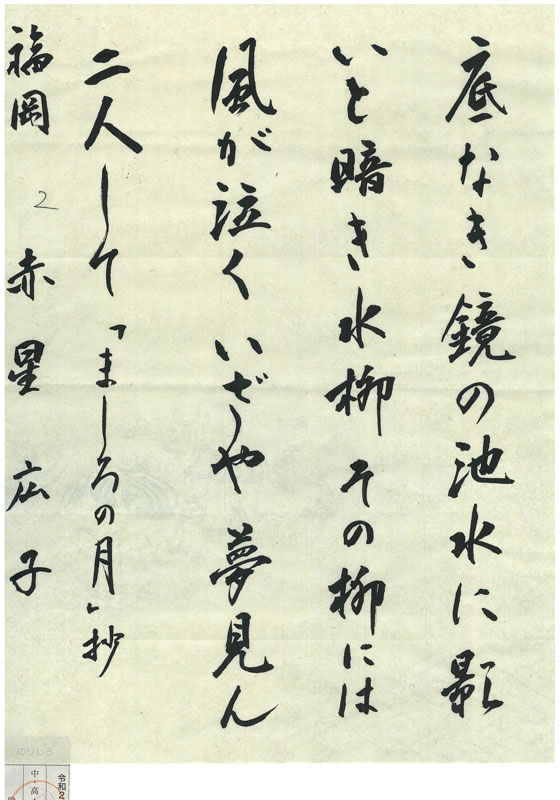 底なき鏡の池水に影
いと暗き水柳その柳には
風が泣く いざや夢見ん
二人して「ましろの月」抄
福岡 2 赤星広子
のりしろ
令和2
中・高